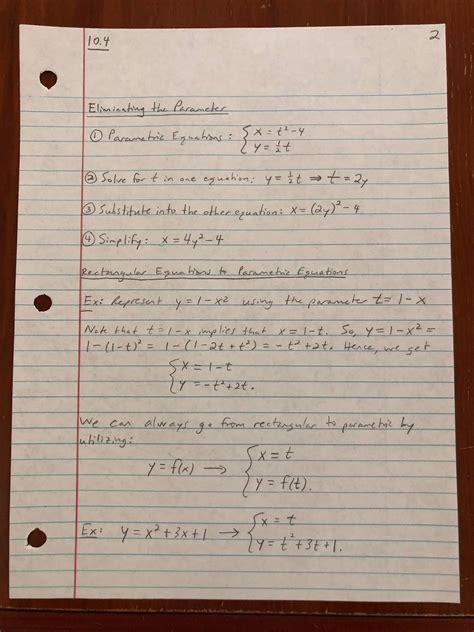 10.4
2
Eliminating the Parameter
① Parametric Equations: { x = t² - 4
y = ½t
② Solve for t in one equation: y = ½t ⇒ t = 2y
③ Substitute into the other equation: x = (2y)² - 4
④ Simplify: x = 4y² - 4
Rectangular Equations to Parametric Equations
Ex: Represent y = 1 - x² using the parameter t = 1 - x
Note that t = 1 - x implies that x = 1 - t. So, y = 1 - x² =
1 - (1 - t)² = 1 - (1 - 2t + t²) = -t² + 2t. Hence, we get
{ x = 1 - t
y = -t² + 2t.
We can always go from rectangular to parametric by
utilizing:
y = f(x) → { x = t
y = f(t).
Ex: y = x² + 3x + 1 → { x = t
y = t² + 3t + 1.